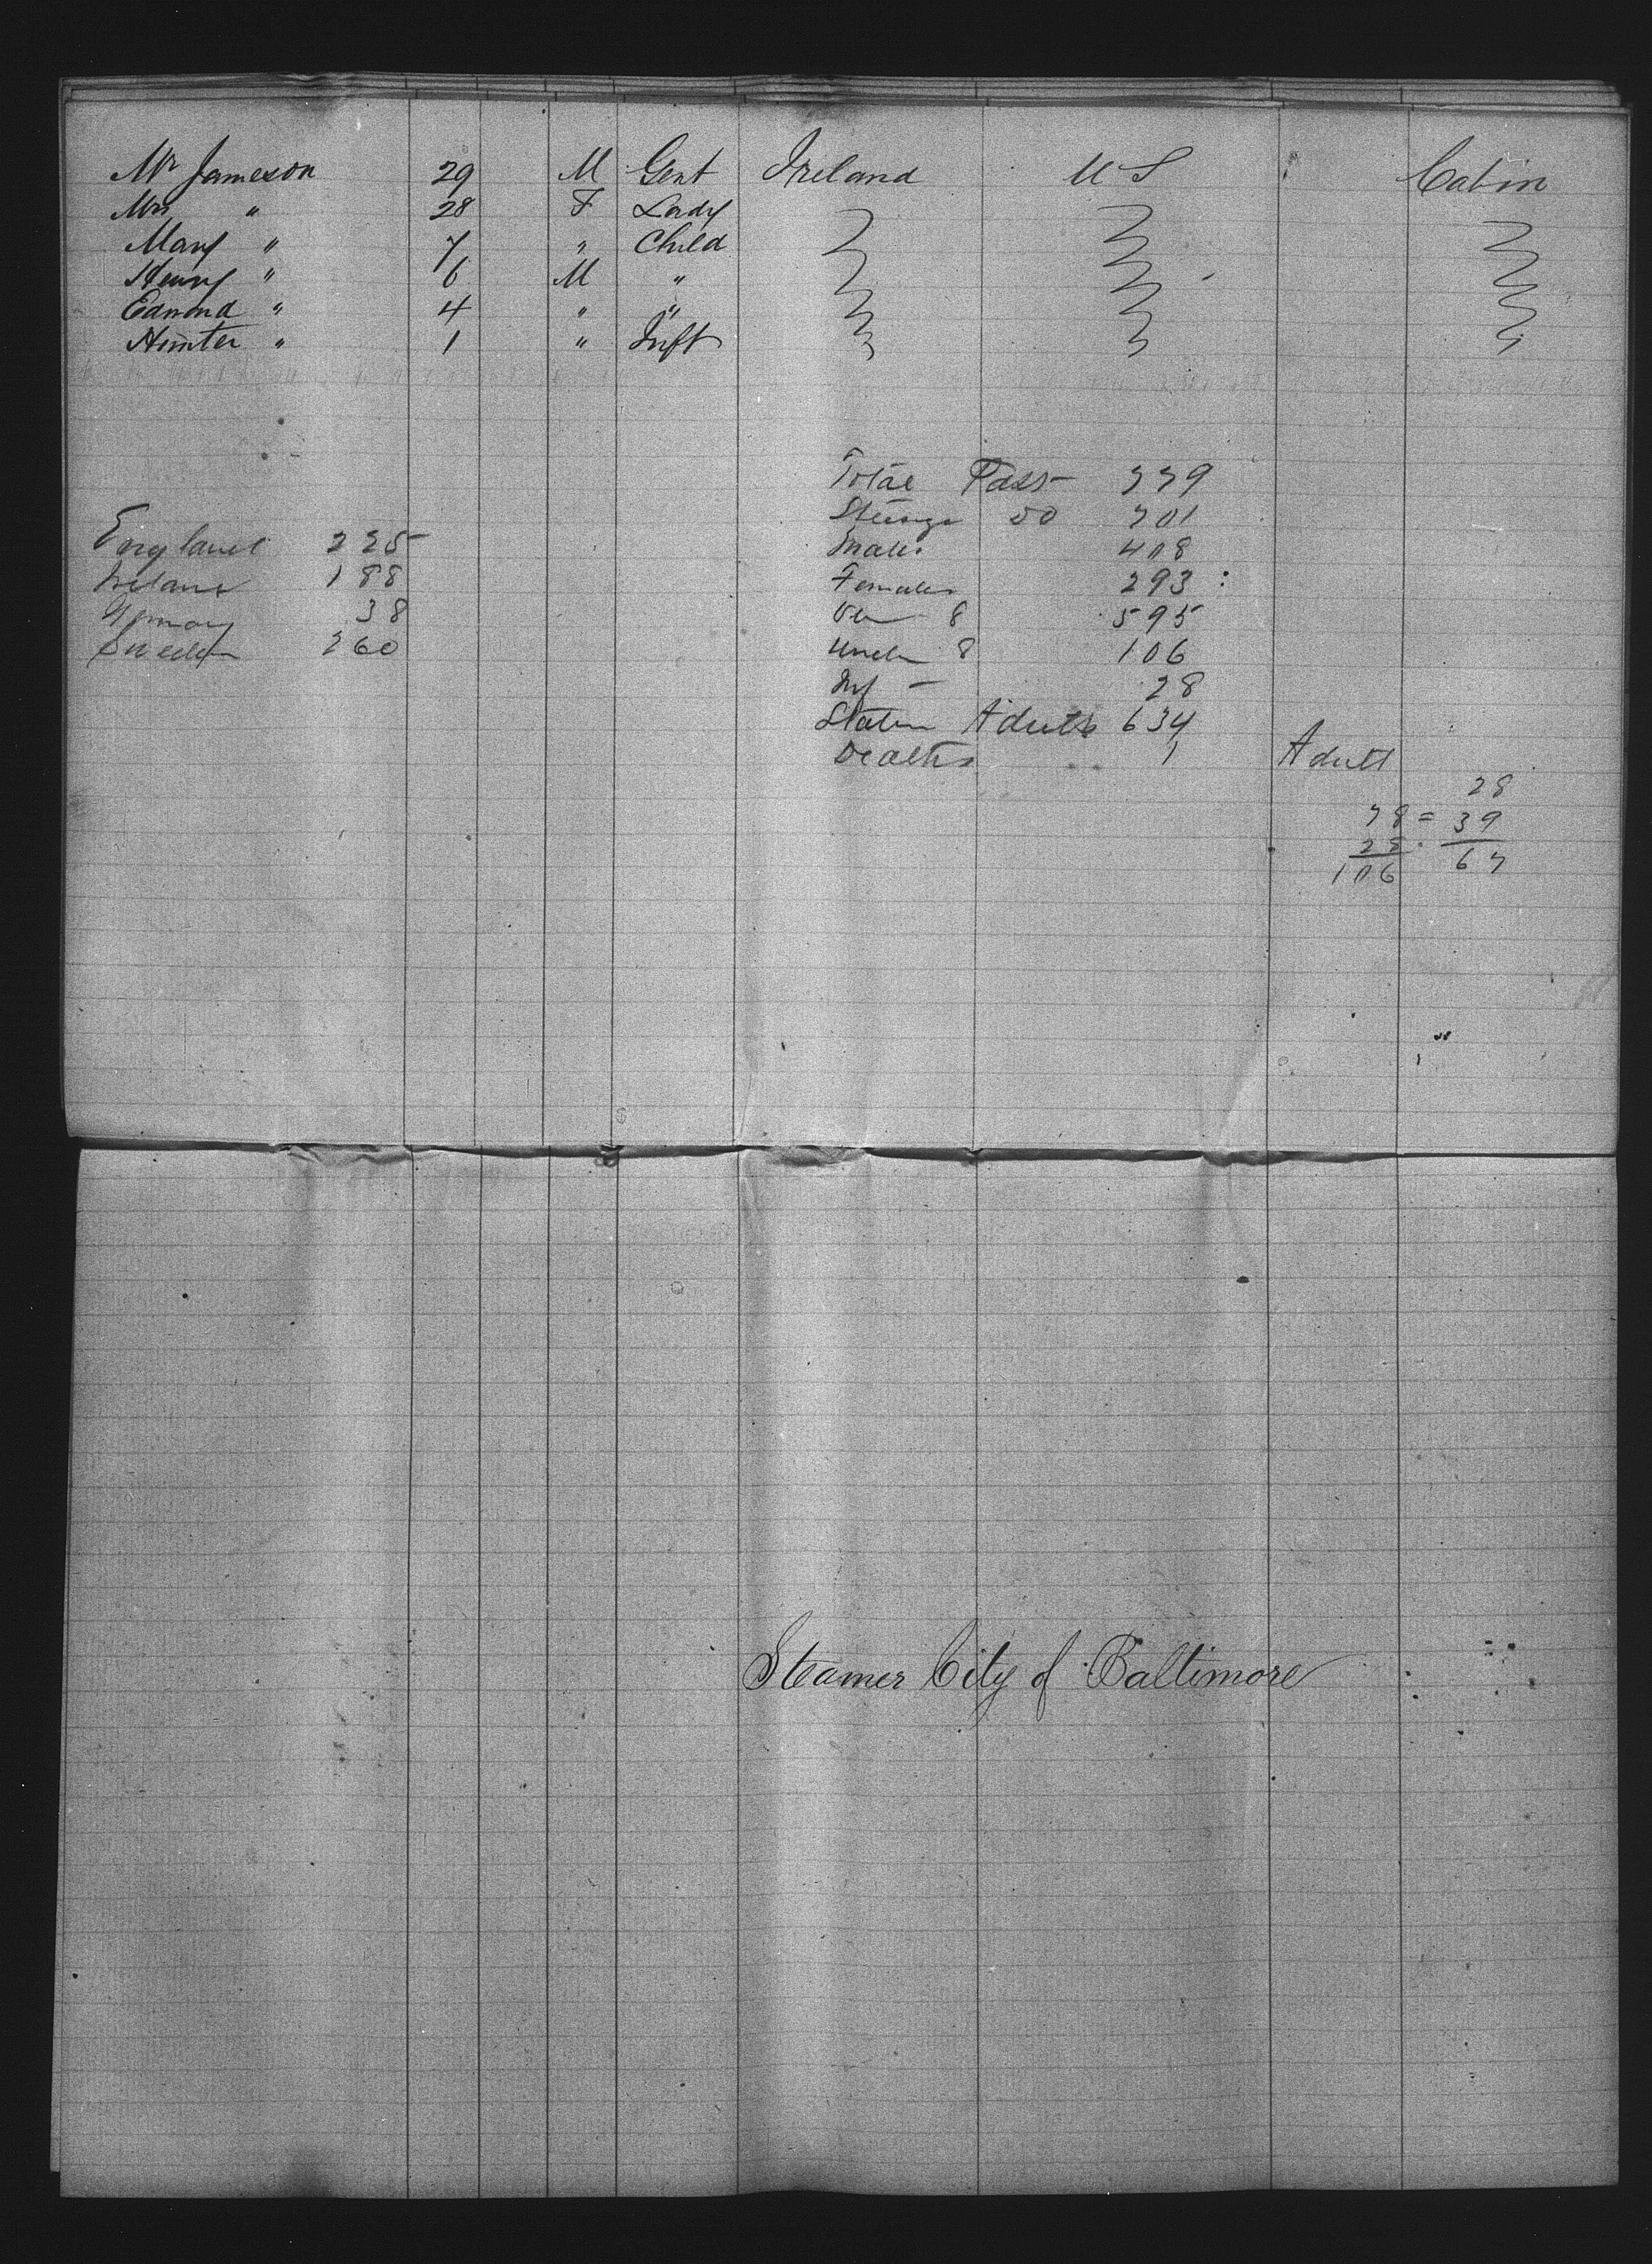 Mr Jameson 29 M Gent Ireland U S Cabin
Mrs " 28 F Lady
Mary " 7 " Child
Henry " 6 M "
Edmond " 4 " "
Hunter " 1 " Inft
Total Pass 779
Steerage Do 701
Males 408
Females 293
Over 8 595
Under 8 106
Inf - 28
Statu Adults 634
Deaths 1 Adult
England 225
Ireland 188
Germany 38
Sweden 260
28
78 = 39
28 67
106
Steamer City of Baltimore